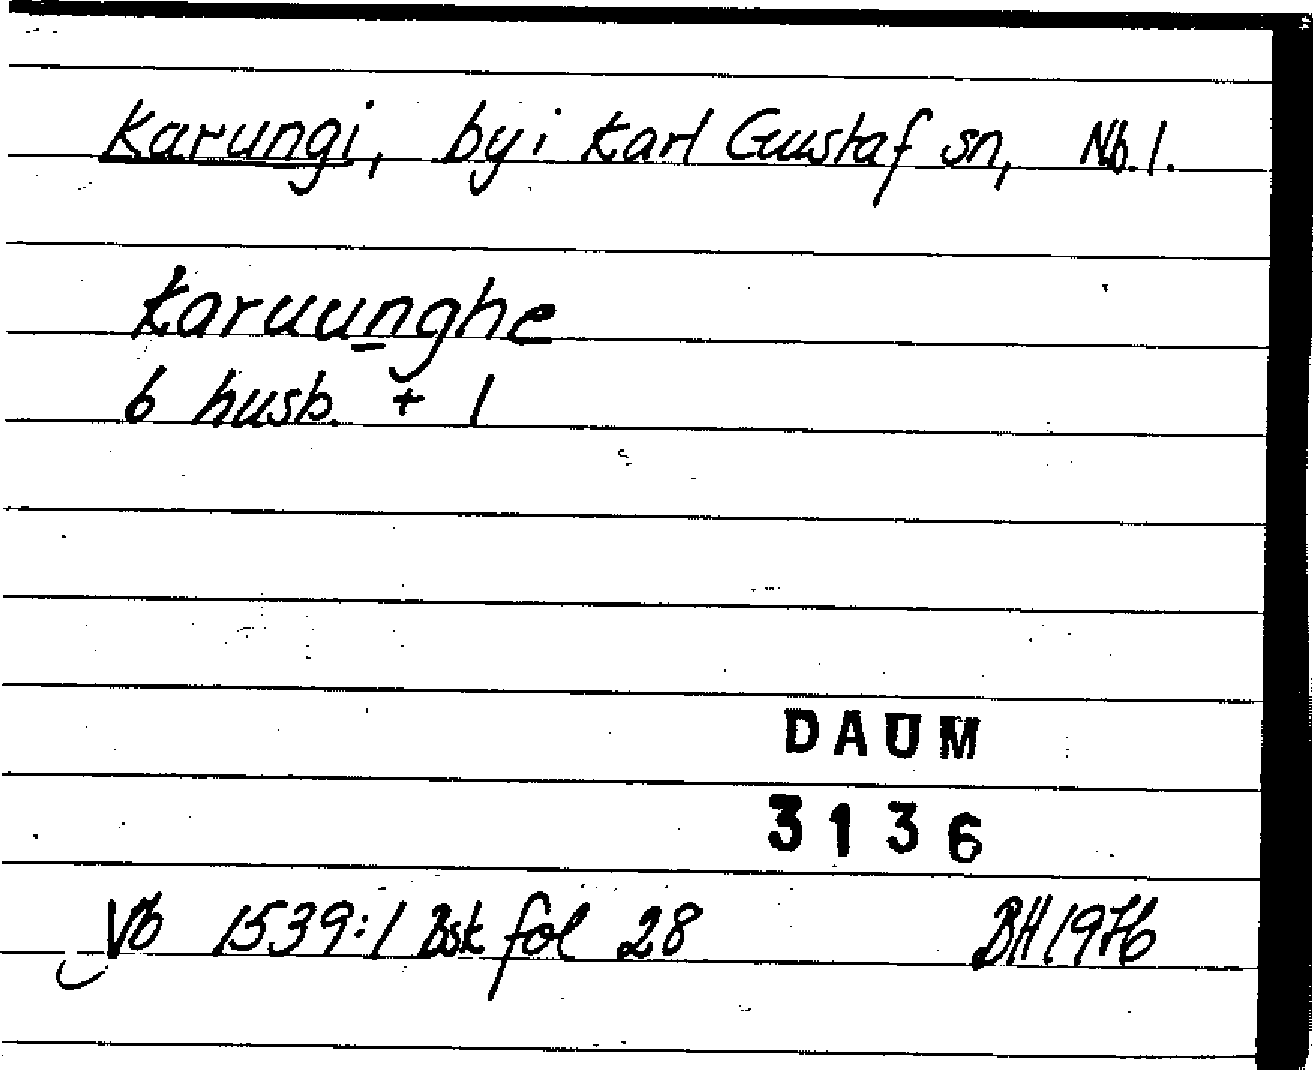 Karungi, by i Karl Gustaf sn, Nb. l.
Karuunghe
6 husb. + 1
DAUM
3136
Vb 1539:1 Bsk fol 28 BH 1976